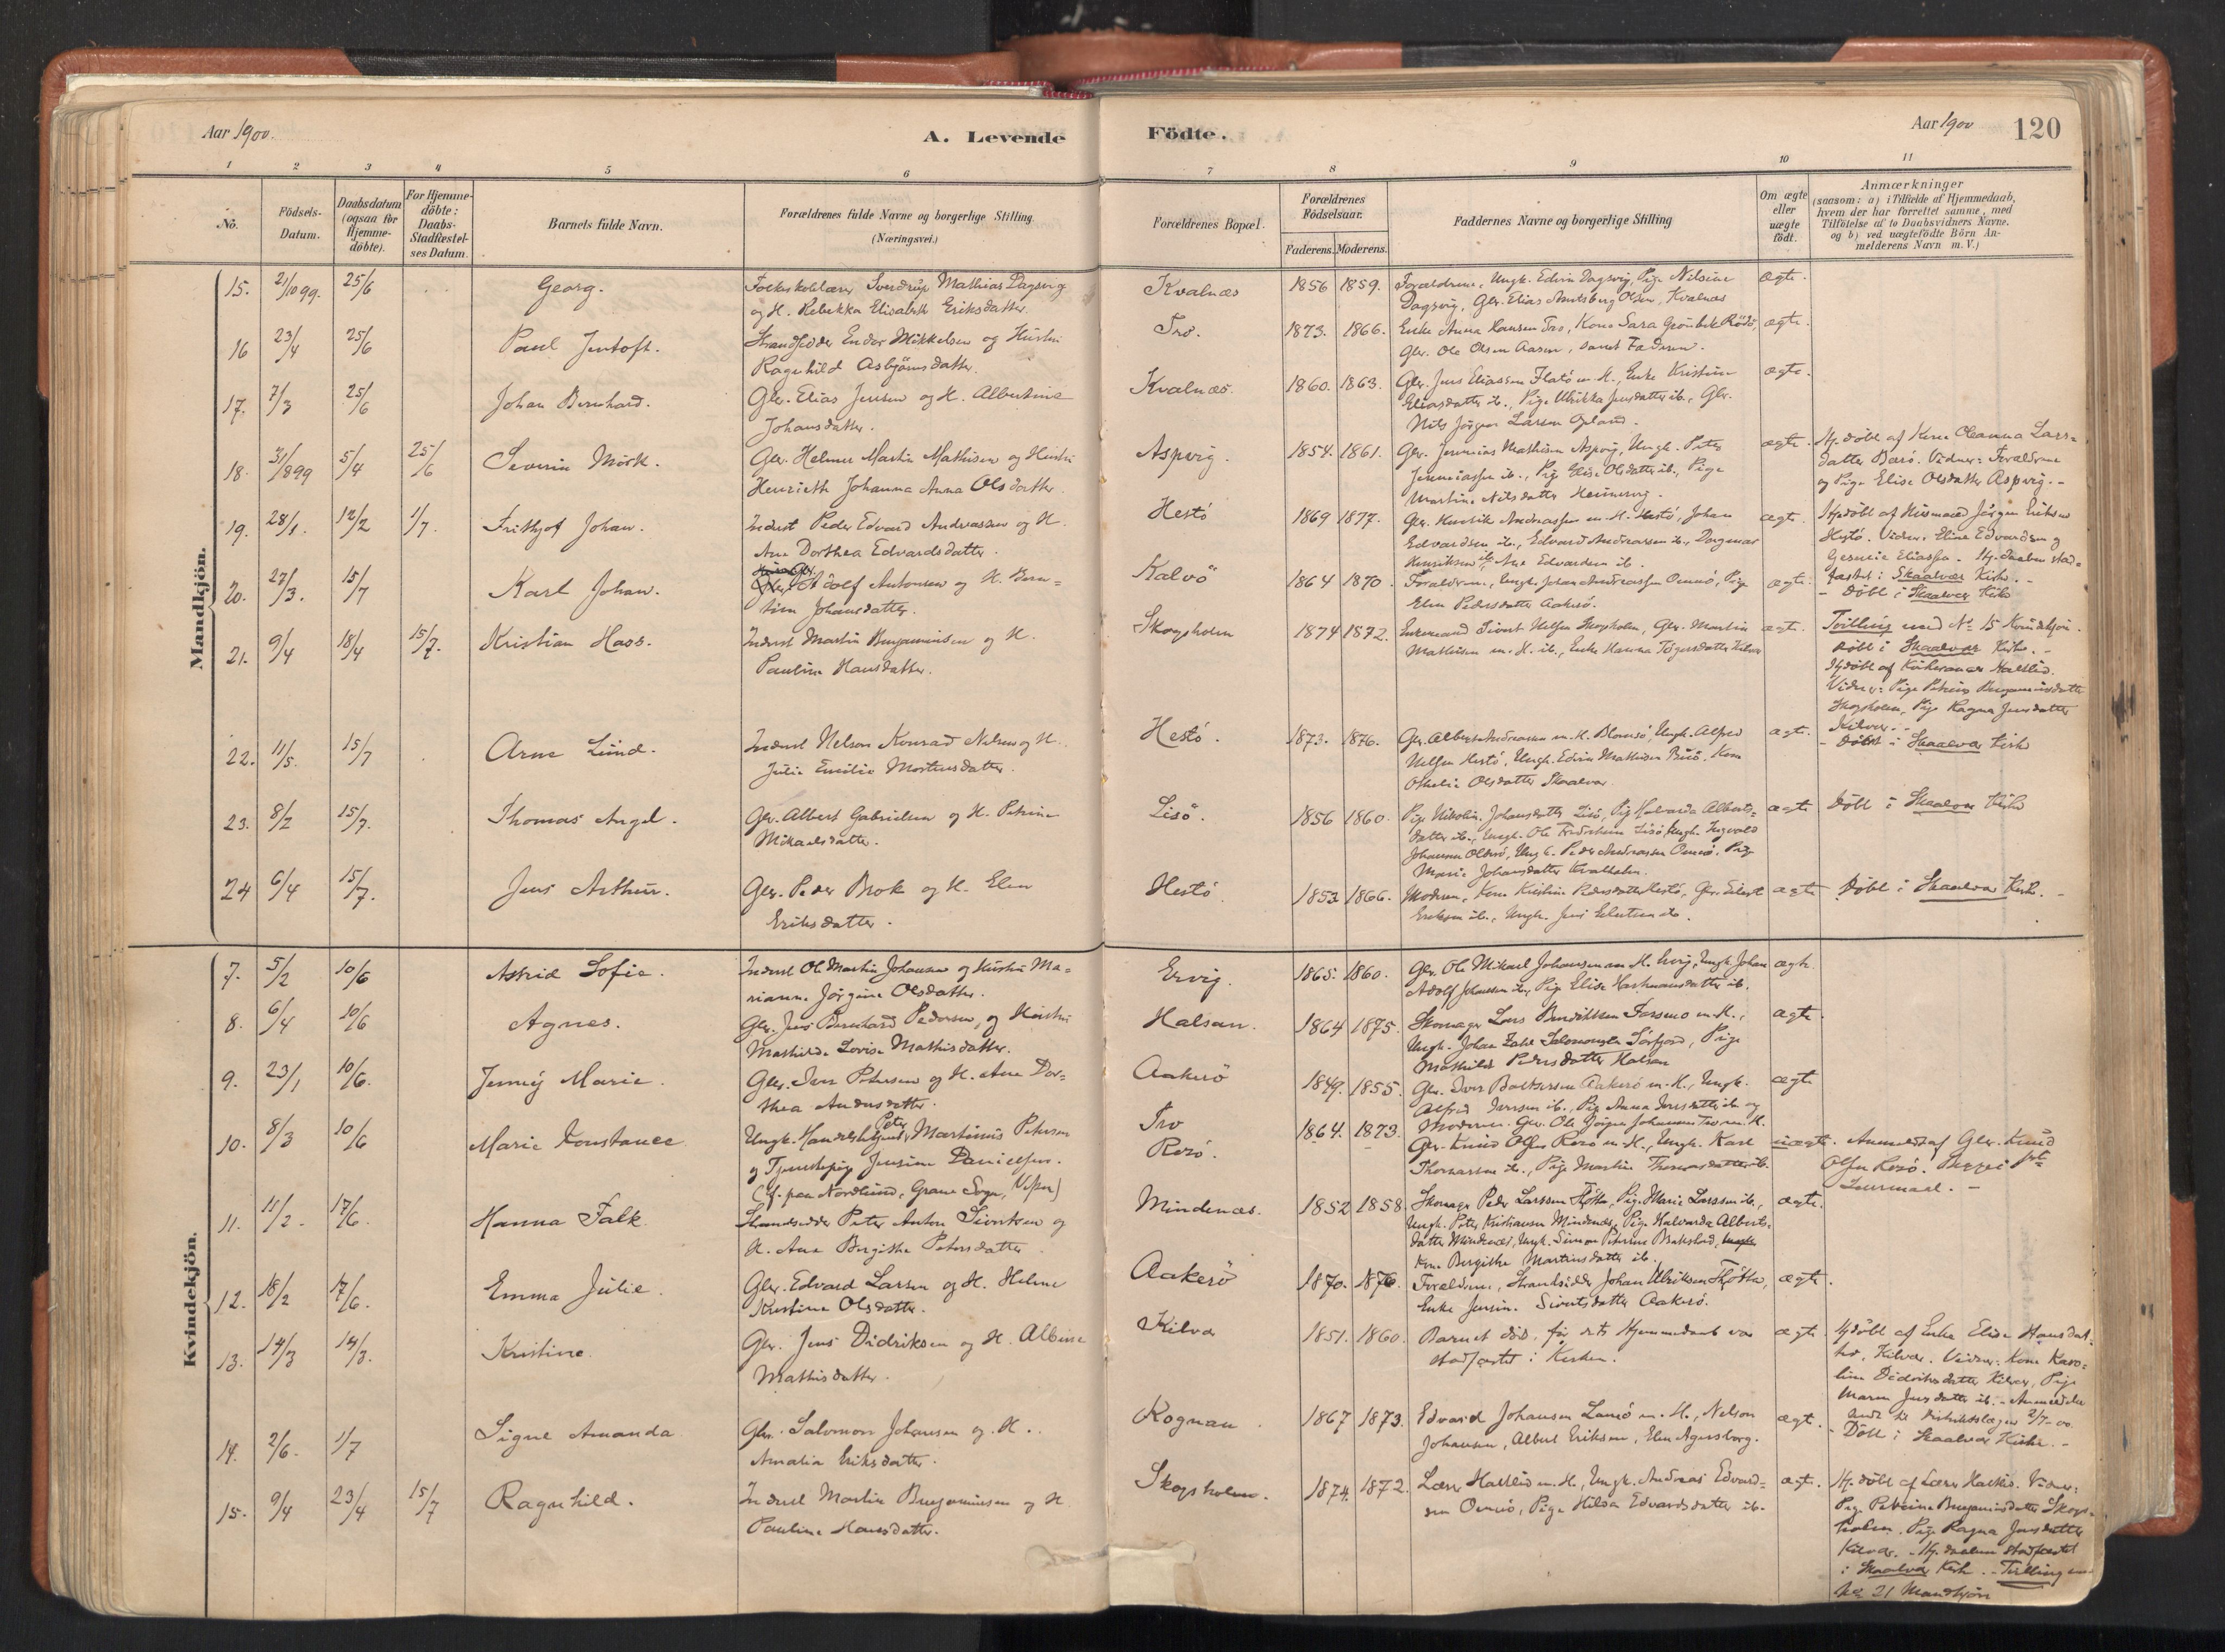 Aar 1900.
A. Levende
Födte.
Aar 1900
120
1 2 3 4 5 6 7 8 9 10 11
No.
Födsels-Datum.
Daabsdatum (ogsaa for Hjemme-döbte).
For Hjemme-döbte: Daabs-Stadfæstel-ses Datum.
Barnets fulde Navn.
Forældrenes fulde Navne og borgerlige Stilling (Næringsvei.)
Forældrenes Bopæl.
Forældrenes Födselsaar.
Faderens. Moderens.
Faddernes Navne og borgerlige Stilling
Om ægte eller uægte födt.
Anmærkninger
(saasom: a) i Tilfælde af Hjemmedaab,
hvem der har forrettet samme, med
Tilföielse af to Daabsvidners Navne.
og b) ved uægtefödte Börn An-
melderens Navn m. V.)
Mandkjön.
15. 21/10 99. 25/6 Georg.
Folkeskolelærer Sverdrup Mathias Dagsvig
og H. Rebekka Elisabeth Eriksdatter.
Kvalnæs 1856 1859.
Forældrene, Ungk. Edvin Dagsvig, Pige Nilsine
Dagsvig, Gbr. Elias Amtsberg Olsen, Kvalnæs
ægte.
16 23/4 25/6 Paul Jentoft.
Strandsidder Endor Mikkelsen og Hustru
Ragnhild Asbjörnsdatter.
Tro. 1873. 1866.
Enke Anna Hansen Tro, Kone Sara Grönbek Rödö,
Gbr. Ole Olsen Aasen, samt Faderen.
ægte.
17. 7/3 25/6 Johan Bernhard.
Gbr. Elias Jensen og H. Albertine
Johansdatter.
Kvalnæs. 1860. 1863.
Gbr. Jens Eliassen Flatö m. H., Enke Kristine
Eliasdatter ib., Pige Ulrikka Jensdatter ib., Gbr.
Nils Jörgen Larsen
ægte.
18. 31/8 99 5/4 25/6 Severin Mörk.
Gbr. Helmer Martin Mathisen og Hustru
Henriette Johanna Anna Olsdatter.
Aspvig. 1854. 1861.
Gbr. Jeremias Mathisen Aspvig, Ungk. Peter
Jeremiassen ib., Pige Elise Olsdatter ib., Pige
Martine Nilsdatter
ægte.
Hj. döbt af Kone Oleanna Lars-
datter Barö. Vidner: Forældrene
og Pige Elise Olsdatter Aspvig. -
19. 28/1. 12/2 1/7. Frithjof Johan.
Inderst Peder Edvard Andreassen og H.
Ane Dorthea Edvardsdatter.
Hestö 1869 1877.
Gbr. Henrik Andreassen m. H. Hestö, Johan
Edvardsen ib., Edvard Andreassen ib., Dagmar
Henriksen ib., Ane Edvardsen ib.
ægte.
Hjdöbt af Husmand Jörgen Eriksen
Hestö. Vidner: Eline Edvardsen og
Eliassen. Hj. daaben stad-
fæstet i Skaalvær Kirke. -
20. 27/3. 15/7 Karl Johan.
Adolf Antonsen og H. Bern-
tine Johansdatter.
Kalvö 1864 1870
Forældrene, Ungk. Johan Andreassen, Pige
Elen Pedersdatter Aakerö.
ægte.
- Döbt i Skaalvær Kirke
21. 9/4 18/4 15/7. Kristian Hass.
Inderst Martin Benjaminsen og H.
Pauline Hansdatter.
Skogsholmen 1874 1872.
Enkemand Sivert Nilsen Skogsholmen, Gbr. Martin
Mathisen m. H. ib., Enke Hanna Tögersdatter Kilvær
ægte.
Tvilling med No 15 Kvindekjön.
Döbt i Skaalvær Kirke. -
Hjdöbt af Kirkesanger Hattlid.
Vidner: Pige Petrine Benjaminsdatter
Skogsholmen, Pige Ragna Jensdatter
Kilvær. -
22. 11/5. 15/7 Arne Lund.
Inderst Nelson Konrad Nilsen og H.
Julie Emilie Mortensdatter.
Hestö. 1873. 1876.
Gbr. Albert Andreassen m. H. Blomsö, Ungk. Alfred
Nilsen Hestö, Ungk. Edvin Mathisen, Kone
Othelie Olsdatter Skaalvær.
ægte.
- Döbt i Skaalvær Kirke
23. 8/2 15/7. Thomas Angel.
Gbr. Albert Gabrielsen og H. Petrine
Mikaelsdatter.
Lisö. 1856 1860.
Pige Nikoline Johansdatter Lisö, Pige Halvarda Alberts-
datter ib., Ungk. Ole Fredriksen Lisö, Ungk. Ingvald
Johansen, Ungk. Peder Andreassen, Pige
Marie Johansdatter Kvalholm.
ægte
Döbt i Skaalvær Kirke
24 6/4 15/7. Jens Arthur.
Gbr. Peder Brok og H. Elen
Eriksdatter.
Hestö. 1853 1866.
Moderen, Kone Kristine Pedersdatter Hestö, Gbr. Eilert
Eriksen ib., Ungk. Jens Eilertsen ib.
ægte
Döbt i Skaalvær Kirke. -
Kvindekjön.
7. 5/2 10/6 Astrid Sofie.
Inderst Ole Martin Johansen og Hustru Ma-
rianne Jörgine Olsdatter.
Ervig. 1865. 1860.
Gbr. Ole Mikael Johansen m. H. Ervig, Ungk. Johan
Adolf Johansen ib., Pige Elise Hartmansdatter ib.
ægte.
8. 6/4 10/6 Agnes.
Gbr. Jens Bernhard Pedersen, og Hustru
Mathilde Lovise Mathisdatter.
Halsan. 1864 1875.
Skomager Lars Bendiktsen Forsmo m. H.,
Ungk. Johan Zahl Salomonsen Sörfjord, Pige
Mathilde Pedersdatter Halsan
ægte.
9. 23/1 10/6. Jenny Marie.
Gbr. Iver Petersen og H. Ane Dor-
thea Andersdatter.
Aakerö 1849. 1855.
Gbr. Iver Baltzersen Aakerö m. H., Ungk.
Alfred Iversen ib., Pige Anna Iversdatter ib. og
ægte
10. 8/3 10/6 Marie Konstance
Ungk. Handelsbetjent Peter Martinus Petersen
og Tjenestepige Jensine Danielsen.
(f. paa Nordlund, Grane Sogn, Vefsn)
Tro
Rosö. 1864. 1873.
Moderen. Gbr. Ole Jörgen Johansen Tro m. H.
Gbr. Knud Olsen Rosö m. H., Ungk. Karl
Thomassen ib., Pige Martine Thomasdatter ib.
uægte.
Anmeldt af Gbr. Knud
Olsen Rosö. Begges 1ste
Leiermaal. -
11. 11/2 - 17/6. Hanna Falk
Strandsidder Peter Anton Sivertsen og
H. Ane Bergithe Petersdatter.
Mindenæs. 1852 1858.
Skomager Peder Larssen Tjötta, Pige Marie Larssen ib.,
Ungk. Peter Kristiansen Mindenæs, Pige Halvarda Alberts-
datter Mindenæs, Ungk. Simon Petersen
Kone Bergithe Martinsdatter ib.
ægte.
12. 18/2 17/6. Emma Julie.
Gbr. Edvard Larsen og H. Helene
Kristine Olsdatter.
Aakerö 1870. 1876.
Forældrene, Strandsidder Johan Ulriksen Tjötta,
Enke Jensine Sivertsdatter Aakerö.
ægte.
13. 14/3 14/3. Kristine.
Gbr. Jens Didriksen og H. Albine
Mathisdatter.
Kilvær 1851. 1860.
Barnet död, för dets Hjemmedaab var
stadfæstet i Kirken.
ægte.
Hjdöbt af Enke Elise Hansdat-
ter, Kilvær. Vidner: Kone Karo-
line Didriksdatter Kilvær, Pige
Maren Jensdatter ib. - Anmeldelse
sendt til Distriktslægen 2/7-00
14. 2/6 - 1/7 Signe Amanda
Gbr. Salomon Johansen og H.
Amalia Eriksdatter.
Rognan. 1867 1873.
Edvard Johansen Lamö m. H., Nelson
Johansen, Albert Eriksen, Elen Agersborg.
ægte.
- Döbt i Skaalvær Kirke. -
15. 9/4 23/4 15/7 Ragnhild.
Inderst Martin Benjaminsen og H
Pauline Hansdatter.
Skogsholmen. 1874. 1872.
Lærer Hattlid m. H., Ungk. Andreas Edvard-
sen, Pige Hilda Edvardsdatter ib.
ægte.
Hj. döbt af Lærer Hattlid. Vidner:
Pige Petrine Benjaminsdatter Skogs-
holmen, Pige Ragna Jensdatter
Kilvær. - Hj. daaben stadfæstet
i Skaalvær Kirke. - Tvilling med
No 21 Mandkjön